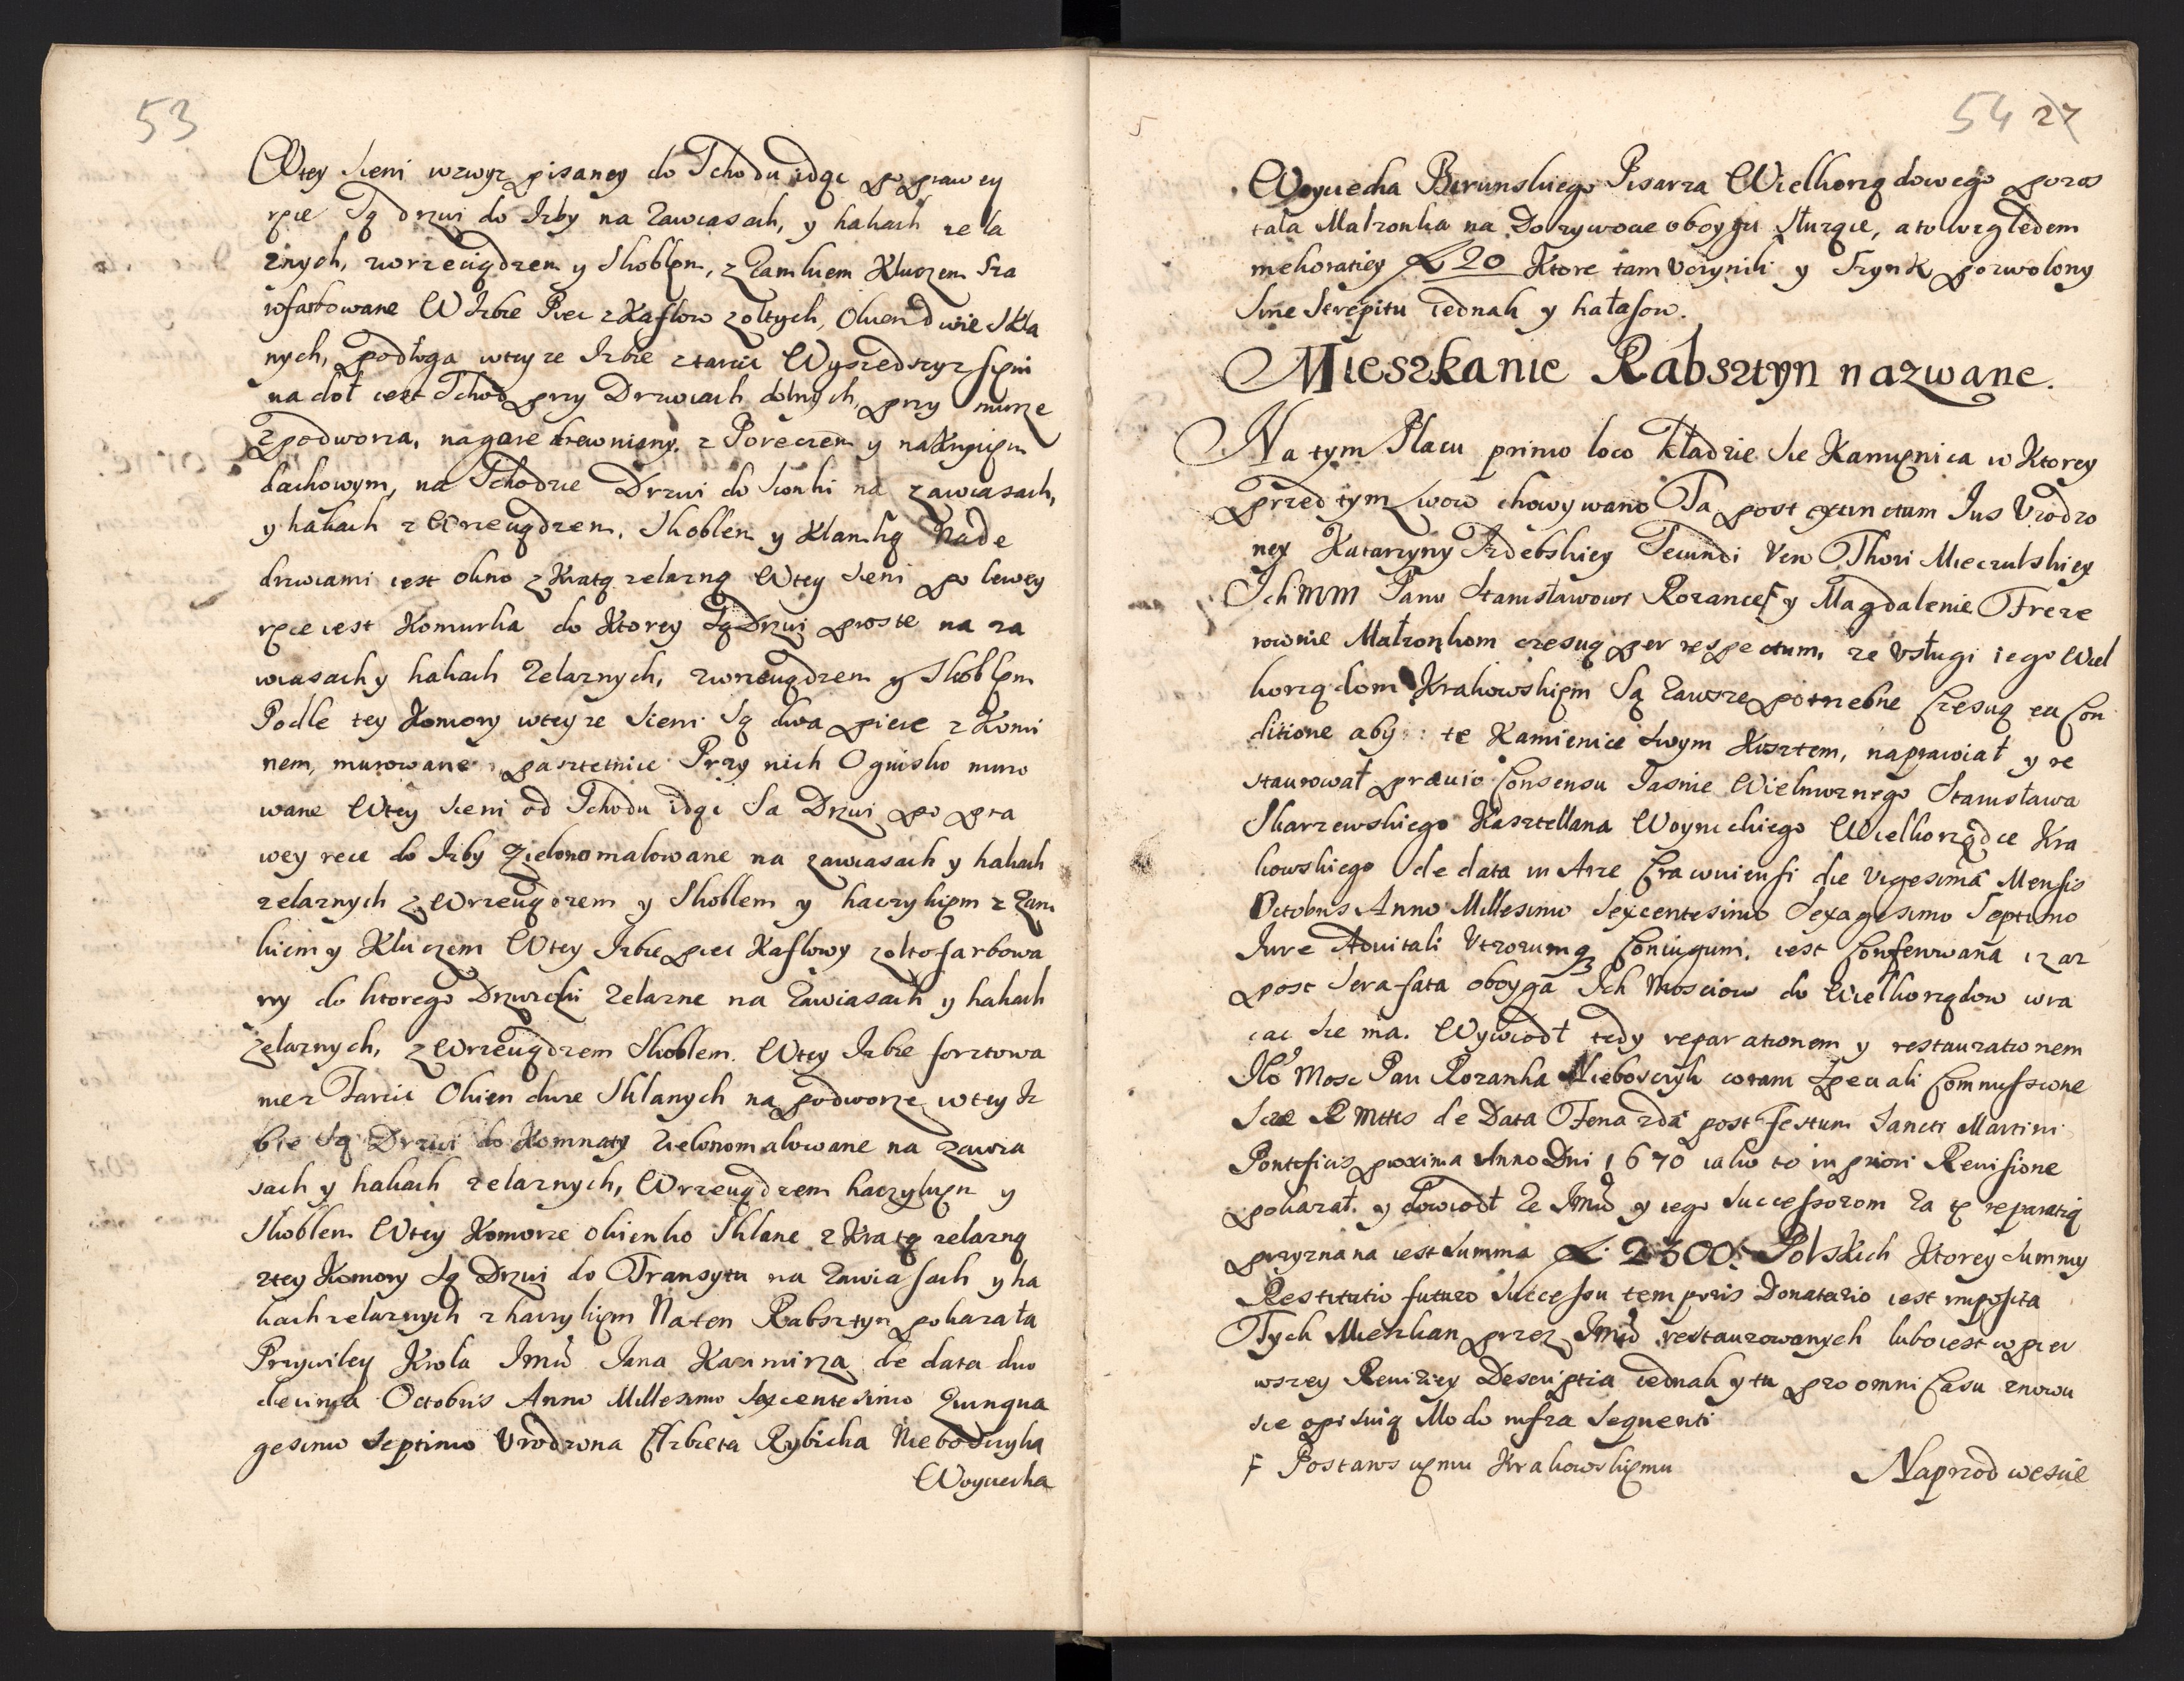 53
Wtey Sieni wzwyz pisaney do Schodu idąc po prawey
ręce Są drzwi do Izby na Zawiasach, y hakach zela
znych, zwrzeciądzem y Skoblem, z Zamkiem Kluczem Sza
rofarbowane W Izbie Piec z Kaflow zołtych, Okien dwie Skla
nych, podłoga wteyze Izbie z tarcic Wyszedszy z Sieni
na doł iest Schod przy Drzwiach dolnych, przy murze
z podworza, na gore drewniany, z Poręczem y nakryciem
dachowym, na Schodzie Drzwi do Sionki na zawiasach,
y hakach z Wrzeciądzem, Skoblem y Klamką Nade
drzwiami iest okno z Kratą zelazną Wtey Sieni po lewey
ręce iest Komurka do Ktorey Są Drzwi proste na za
wiasach y hakach Zelaznych, zwrzeciądzem y Skoblem
Podle tey Komory wteyze Sieni Są dwa piece z Komi
nem, murowane pasztetnice Przy nich Ognisko muro
wane Wtey Sieni od Schodu idąc Sa Drzwi po pra
wey rece do Izby Zielonomalowane na zawiasach y hakach
zelaznych z Wrzeciądzem y Skoblem y haczykiem z Zam
kiem y Kluczem Wtey Izbie piec Kaflowy zołtofarbowa
ny do ktorego Drzwiczki Zelazne na Zawiasach y hakach
zelaznych, z Wrzeciądzem Skoblem. Wtey Izbie forsztowa
nie z Tarcic Okien dwie Sklanych na podworze wtey Iz
bie Są Drzwi do Komnaty Zielonomalowane na zawia
sach y hakach zelaznych, Wrzeciądzem haczykiem y
Skoblem Wtey Komorze okienko Sklane z Kratą zelazną
z tey Komory Są Drzwi do Transytu na Zawiasach y ha
kach zelaznych z haczykiem Na ten Rabsztyn pokazała
Przywiley Krola Jmci Jana Kazimirza de data duo
decima Octobris Anno Millesimo Sexcentesimo Quinqua
gesimo Septimo Urodzona Elzbieta Rybicka Nieboszczyka
Woyciecha
54 27
Woyciecha Birunskiego Pisarza Wielkorządowego pozos
tała Małzonka na Dozywocie oboygu Słuzące, a to względem
melioratiey 20 Ktore tam Uczynili y Szynk pozwolony
Sine Strepitu iednak y hałasow.
Mieszkanie Rabsztyn nazwane.
Na tym Placu primo loco Kładzie Sie Kamienica w Ktorey
przed tym Lwow chowywano Ta post extinctum Ius Urodzo
ney Katarzyny Secundi Vero Thori Mieczulskiey
Ich MM Panu Stanisławowi Rozance F y Magdalenie Freze
rownie Małzonkom czesuą per respectum, ze Usługi iego Wiel
korządom Krakowskiem Są Zawsze potrzebne Czesuą ea Con
ditione aby te Kamienice Swym Kosztem, naprawiał y re
staurował prævio Consensu Jasnie Wielmoznego Stanisława
Skarzewskiego Kasztellana Woynickiego Wielkorządce Kra
kowskiego de data in Arce Cracouiensi die Vigesima Mensis
Octobris Anno Millesimo Sexcentesimo Sexagesimo Septimo
Iure Aduitali Utrorumq Coniugum, iest Conferowana czaz
post Sera fata oboyga Ich Mosciow do Wielkorządow wra
cac Sie ma. Wywiodł tedy reparationem y restaurationem
Mosc Pan Rozanka Nieboszczyk coram Speciali Commissione
Scæ R Mttis de Data post Festum Sancti Martini
Pontificis proxima Anno Dni 1670 iako to in priori Reuisione
pokazał, y dowiodł Ze Jmci y iego Successorom Za tę reparatią
przyznana iest Summa 2300 Polskich Ktorey Summy
Restitutio futuro Successu temporis Donatario iest imposita
Tych Mieszkan przez Jmci restaurowanych lubo iest w pier
wszey Rewiziey Descriptia iednak y tu pro omni Casu znowu
sie opisuią Modo infra Sequenti
F Postarosciemu Krakowskiemu
Naprzod wescie